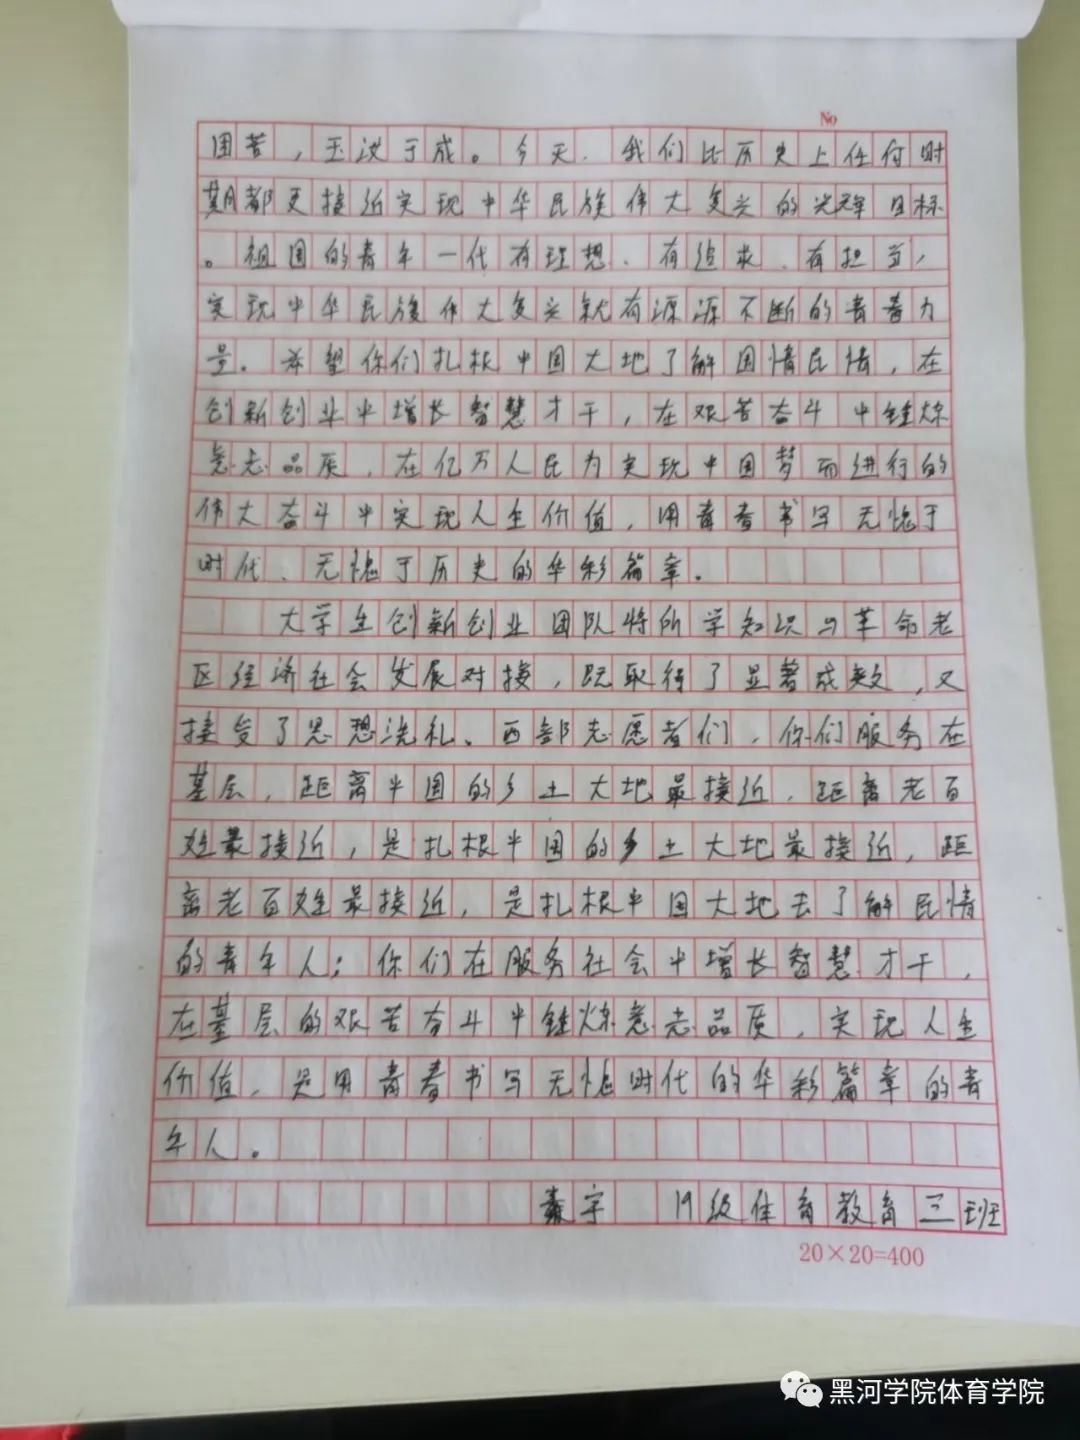 No
困苦，玉汝于成。今天，我们比历史上任何时
期都更接近实现中华民族伟大复兴的光辉目标
。祖国的青年一代有理想、有追求、有担当，
实现中华民族伟大复兴就有源源不断的青春力
量。希望你们扎根中国大地了解国情民情，在
创新创业中增长智慧才干，在艰苦奋斗中锤炼
意志品质，在亿万人民为实现中国梦而进行的
伟大奋斗中实现人生价值，用青春书写无愧于
时代、无愧于历史的华彩篇章。
大学生创新创业团队将所学知识与革命老
区经济社会发展对接，既取得了显著成效，又
接受了思想洗礼。西部志愿者们，你们服务在
基层，距离中国的乡土大地最接近，距离老百
姓最接近，是扎根中国的乡土大地最接近，距
离老百姓最接近，是扎根中国大地去了解民情
的青年人；你们在服务社会中增长智慧才干，
在基层的艰苦奋斗中锤炼意志品质，实现人生
价值，是用青春书写无愧时代的华彩篇章的青
年人。
宇 19级体育教育三班
20×20=400
黑河学院体育学院